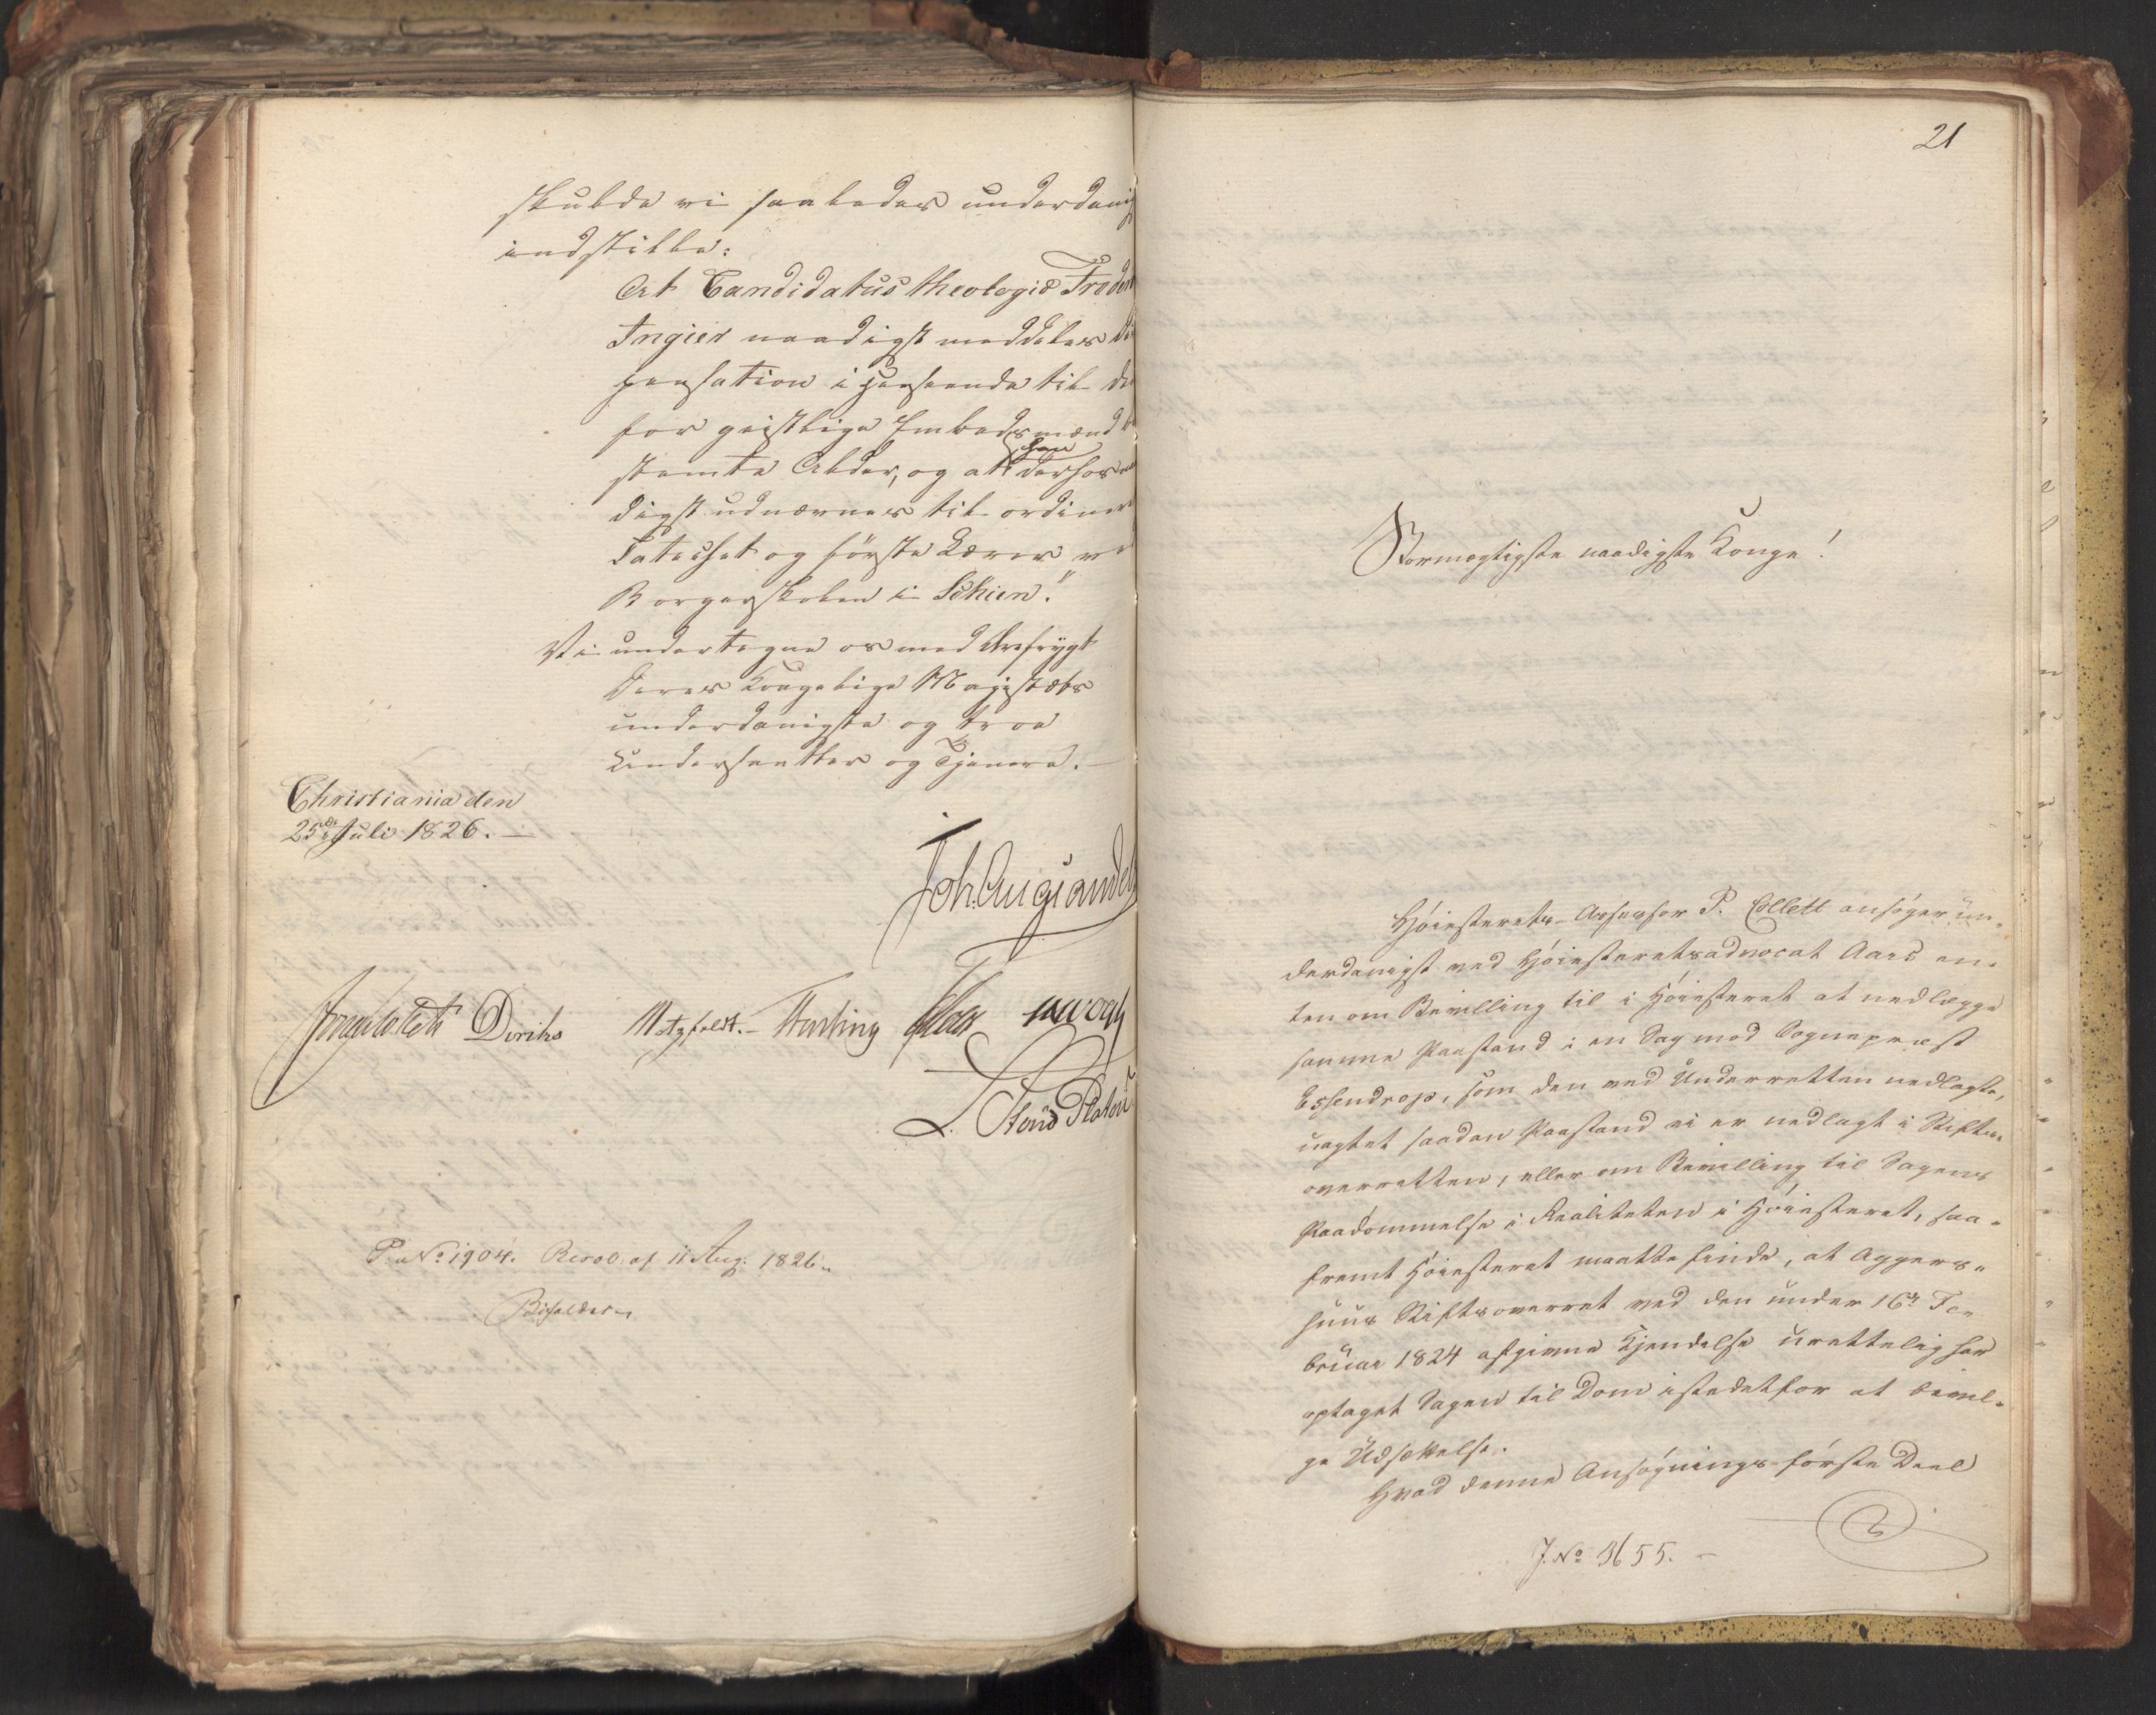 skulde vi saaledes underdanig
indstille:
At Candidatus theologiæ Freder
Ingier naadigst meddeles Di
pensation i Henseende til de
for geistlige Embedsmænd b
han
stemte Alder, og at derhos
digst udnævnes til ordiner
Catechet og förste Lærer ve
Borgerskolen i Schien."
Vi undertegne os med Ærefrygt
Deres Kongelige Majestæts
underdanigste og troe
Undersaatter og Tjenere. —
Christiania den
25de Juli 1826. —
Joh. Aug Sandels
Jonas Collett Diriks Motzfeldt. Treschow Fasting
L. Stoud Platou
P. No 1904. Resol. af 11 Aug: 1826.
Bifaldes
21
Stormægtigste naadigste Konge!
Höiesterets-Assessor P. Collett ansöger un-
derdanigst ved Höiesteretsadvocat Aars en-
ten om Bevilling til i Höiesteret at nedlægge
samme Paastand i en Sag mod Sognepræst
Essendrop, som den ved Underretten nedlagte,
uagtet saadan Paastand ei er nedlagt i Stifts-
overretten, eller om Bevilling til Sagens
Paadömmelse i Realiteten i Höiesteret, saa-
fremt Höiesteret maatte finde, at Aggers-
huus Stiftsoverret ved den under 16de Fe-
bruar 1824 afgivne Kjendelse urettelig har
optaget Sagen til Dom istedetfor at bevil-
ge Udsættelse.
Hvad denne Ansögnings förste Deel
J. No 3655. —